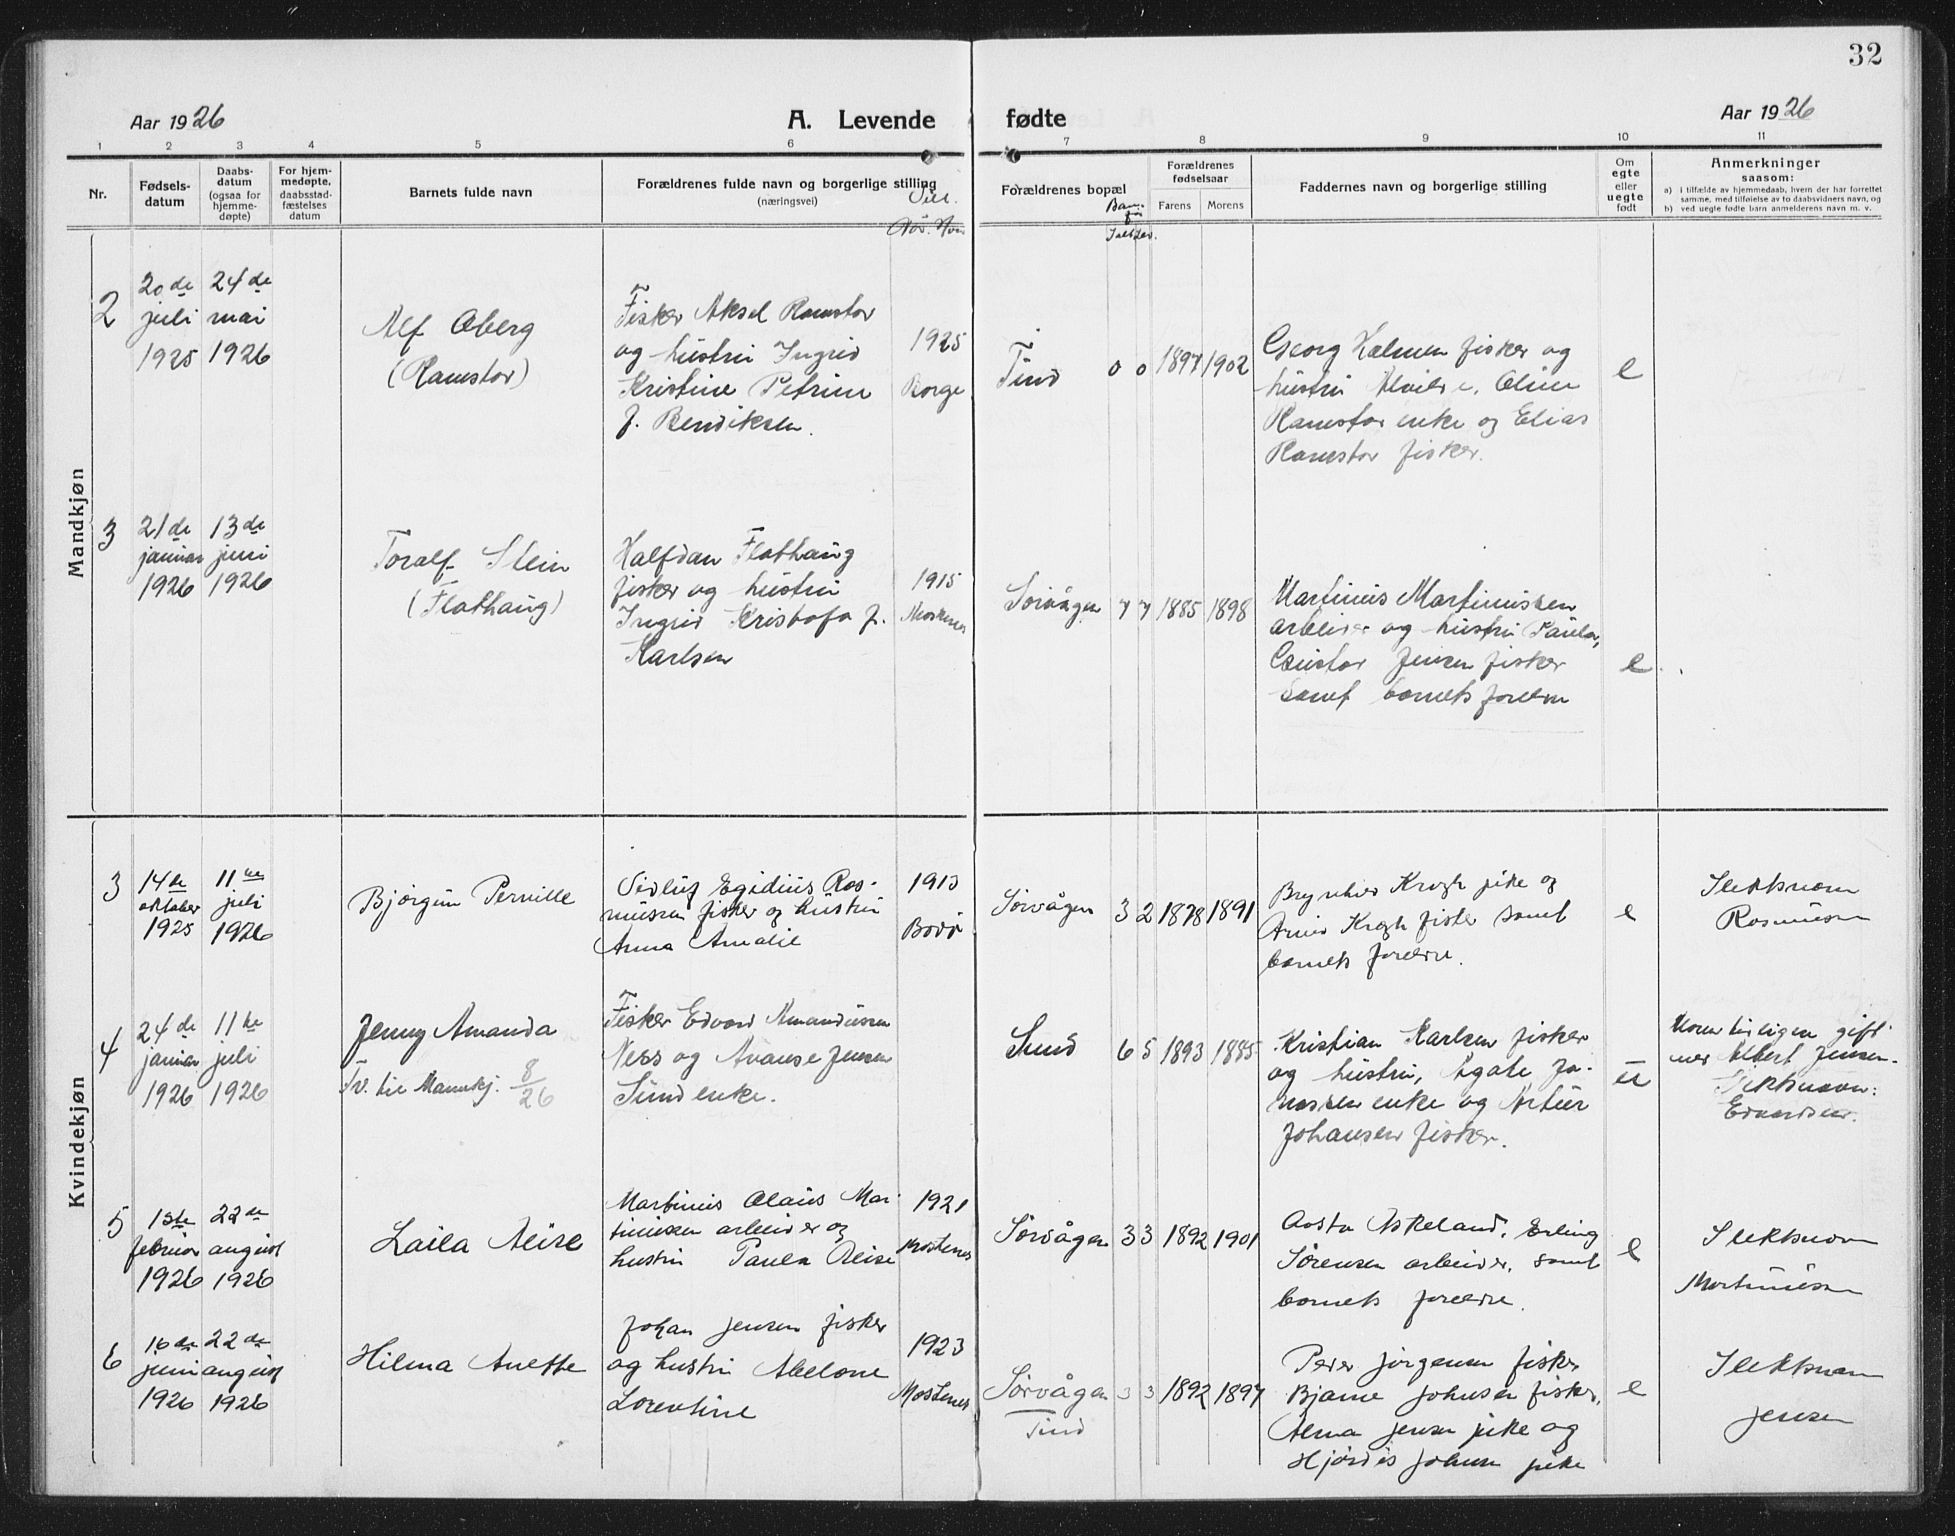 32
Aar 1926
A. Levende
fødte
Aar 1926
1 2 3 4 5 6 7 8 9 10 11
Nr.
Fødsels-
datum
Daabs-
datum
(ogsaa for
hjemme-
døpte)
For hjem-
medøpte,
daabsstad-
fæstelses
datum
Barnets fulde navn
Forældrenes fulde navn og borgerlige stilling
(næringsvei)
Forældrenes bopæl
Forældrenes
fødselsaar
Farens Morens
Faddernes navn og borgerlige stilling
Om
egte
eller
uegte
født
Anmerkninger
saasom:
a) i tilfælde av hjemmedaab, hvem der har forrettet
samme, med tilføielse av to daabsvidners navn, og
b) ved uegte fødte barn anmelderens navn m. v.
Mandkjøn
2
20de
juli
1925
24de
mai
1926
Alf Oberg
(Ramstor)
Fisker Aksel Ramstor
og hustru Ingrid
Kristine Petrine
f. Bendiksen.
1925
Borge
Tind
0 0
1897 1902
Georg Halmen fisker og
hustru
Ramstor enke og Elias
Ramstor fisker.
e
3
21de
januar
1926
13de
juni
1926
Toralf Stein
(Flathaug)
Halfdan Flathaug
fisker og hustru
Ingrid Kristofa f.
Karlsen
1915
Moskenes
Sørvågen
7 7
1885 1898
Martinius Martinussen
arbeider og hustru Paula,
Jensen fisker
samt barnets foreldre
e
Kvindekjøn
3
14de
oktober
1925
11te
juli
1926
Bjørgun Pernille
Sidluf Egidius Ras-
mussen fisker og hustru
Anna Amalie
1913
Bodø
Sørvågen
3 2
1878 1891
Brynhild Krogh pike og
Arnid Krogh fisker samt
barnets foreldre.
e
Slektsnavn
Rasmussen
4
24de
januar
1926
11te
juli
1926
Jenny Amanda
Tv. til Mannkj. 8/26
Fisker Edvard Amandussen
Ness og Avanse Jensen
Sund enke.
Sund
6 5
1893 1885
Kristian Karlsen fisker
og hustru, Agate Jo-
nassen enke og Artur
Johansen fisker.
u
Moren tidligere gift
med Albert Jensen.
Slektsnavn:
Edvardsen.
5
1ste
februar
1926
22de
august
1926
Laila Alise
Martinus Olaus Mar-
tinussen arbeider og
hustru Paula Alise
1921
Moskenes
Sørvågen
3 3
1892 1901
Aasta Askeland, Erling
Sørensen arbeider, samt
barnets foreldre.
e
Slektsnavn
Martinussen
6
16de
juni
1926
22de
august
1926
Hilma Anette
Johan Jensen fisker
og hustru Abelone
Lorentine
1923
Moskenes
Sørvågen
Tind
3 3
1892 1897
Peder Jørgensen fisker
Bjarne Johnsen fisker,
Alma Jensen pike og
Hjørdis Johnsen pike
e
Slektsnavn
Jensen